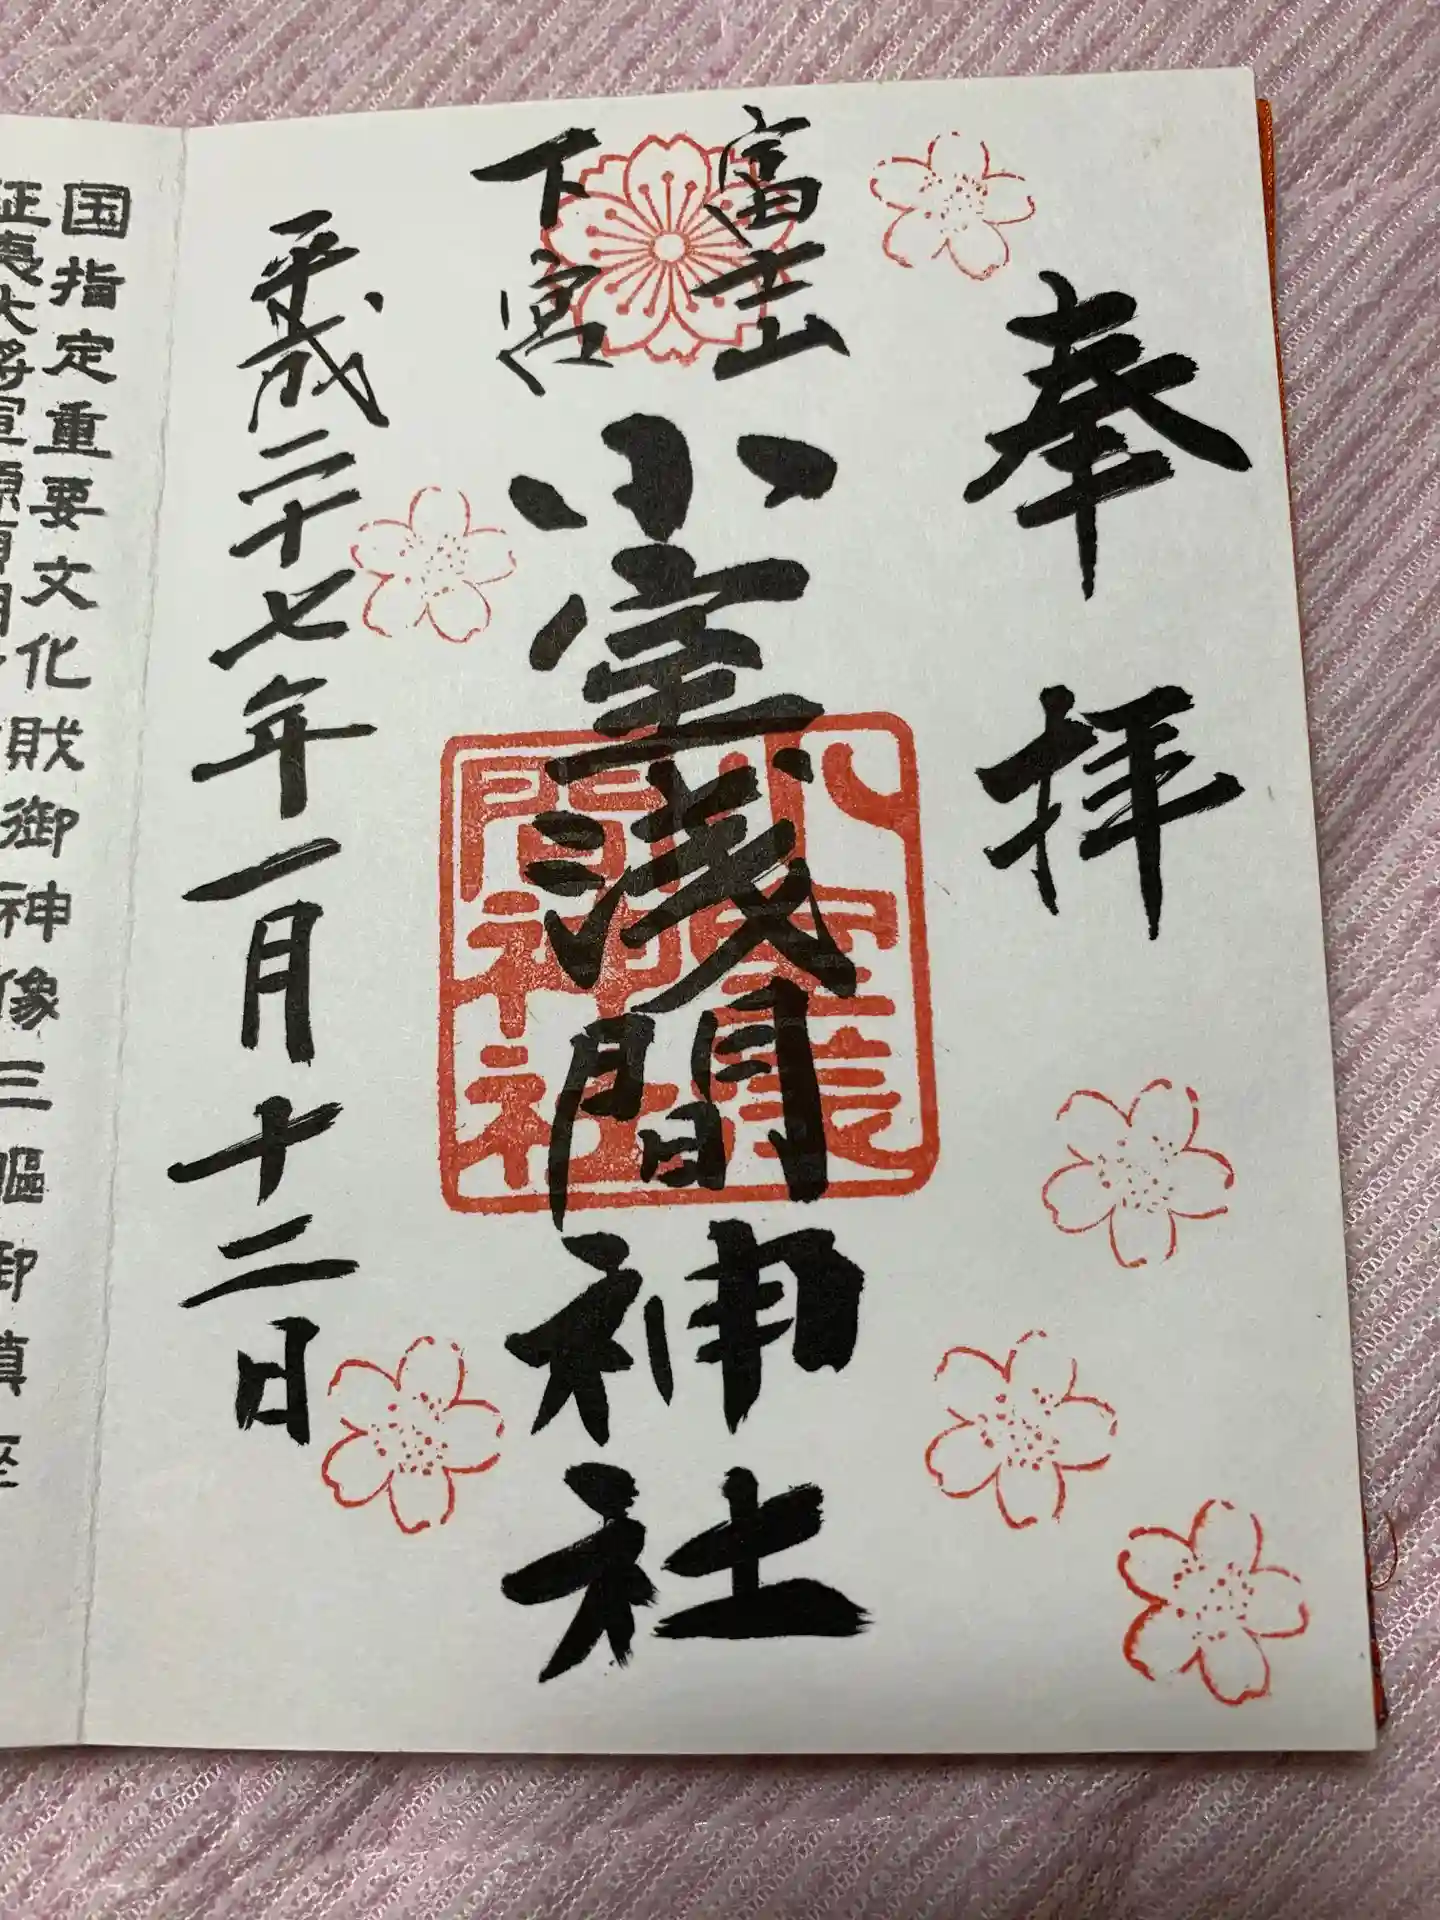 奉拝
富士山
下宮
小室浅間神社
小室浅間神社
平成二十七年一月十二日
国指定重要文化財御神像三躯御鎮座
征夷大将軍源頼朝